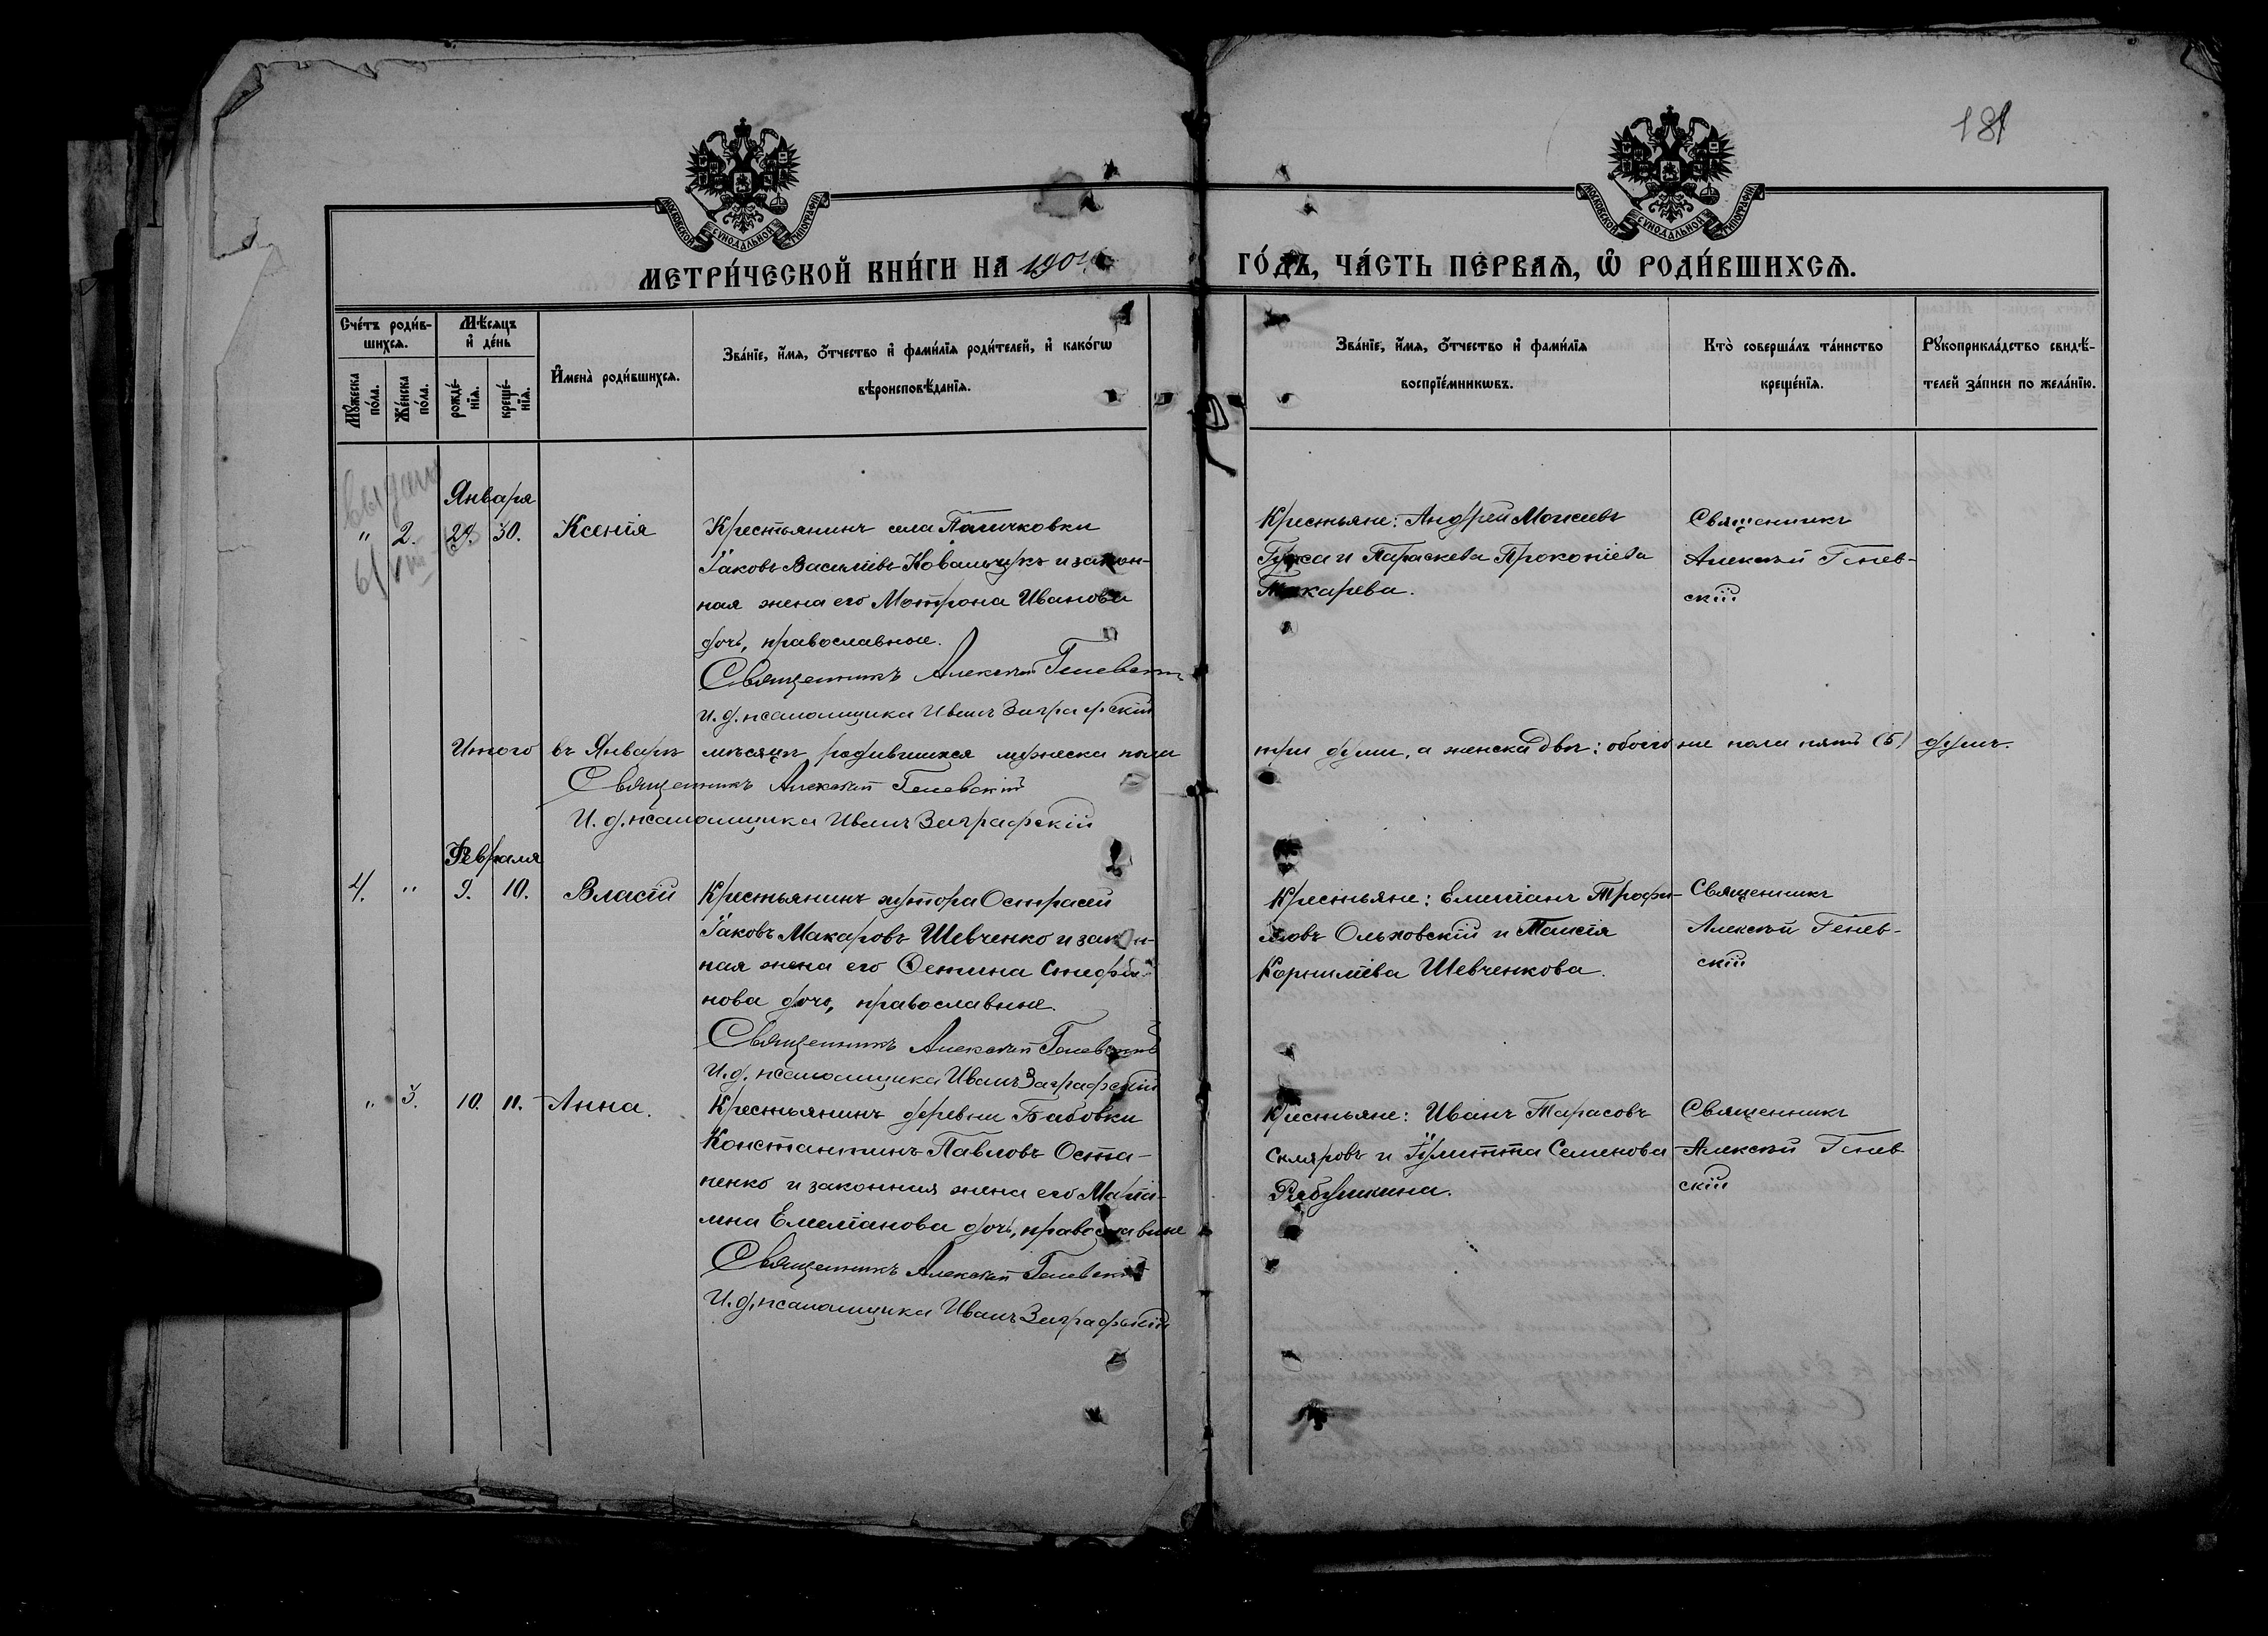 181
МОСКОВСКОЙ СУНОДАЛЬНОЙ ТИПОГРАФІИ
МОСКОВСКОЙ СУНОДАЛЬНОЙ ТИПОГРАФІИ
МЕТРИ́ЧЕСКОЙ КНИ́ГИ НА 190
ГО́ДЪ, ЧА́СТЬ ПЕ́РВАѦ, Ѡ҆ РОДИ́ВШИХСѦ.
Сче́тъ роди́в-
шихсѧ.
Мѣ́сѧцъ
и҆ де́нь
Мꙋ́жеска по́ла.
Же́нска по́ла.
рожде́-
нїѧ.
креще́-
нїѧ.
И҆мена̀ роди́вшихсѧ.
Зва́нїе, и҆́мѧ, ѻ҆́тчество и҆ фами́лїѧ роди́телей, и҆ како́гѡ
вѣроисповѣ́данїѧ.
Зва́нїе, и҆́мѧ, ѻ҆́тчество и҆ фами́лїѧ
воспрїе́мникѡвъ.
Кто̀ соверша́лъ та́инство
креще́нїѧ.
Рꙋкоприкла́дство свидѣ́-
телей за́писи по жела́нїю.
Января
" 2. 30. Ксенія
Крестьянинъ села
Іаковъ Васильевъ Ковальчукъ и закон-
ная жена его Мотрона Иванова
дочь, православные.
Священникъ Алексѣй Геневскій
И. д. псаломщика Иванъ Заграфскій
Крестьяне: Андрей Моисеевъ
и Параскева Прокопіева
Токарева.
Священникъ
Алексѣй Генев-
скій
Итого въ Январѣ мѣсяцѣ родившихся мужеска пола
три души, а женска двѣ; обоего же пола пять (5) душъ.
Священникъ Алексѣй Геневскій
И. д. псаломщика Иванъ Заграфскій
Февраля
4. " 9. 10. Власій
Крестьянинъ хутора
Іаковъ Макаровъ Шевченко и закон-
ная жена его Стефа-
нова дочь, православные.
Священникъ Алексѣй Геневскій
И. д. псаломщика Иванъ Заграфскій
Крестьяне: Емиліанъ Трофи-
мовъ Ольховскій и Таисія
Корниліева Шевченкова.
Священникъ
Алексѣй Генев-
скій
" 3. 10. 11. Анна.
Крестьянинъ деревни Бабовки
Константинъ Павловъ Оста-
пенко и законная жена его
Емеліанова дочь, православные
Священникъ Алексѣй Геневскій
И. д. псаломщика Иванъ Заграфскій
Крестьяне: Иванъ Тарасовъ
Скляровъ и Іулитта Семенова
Рябушкина.
Священникъ
Алексѣй Генев
скій